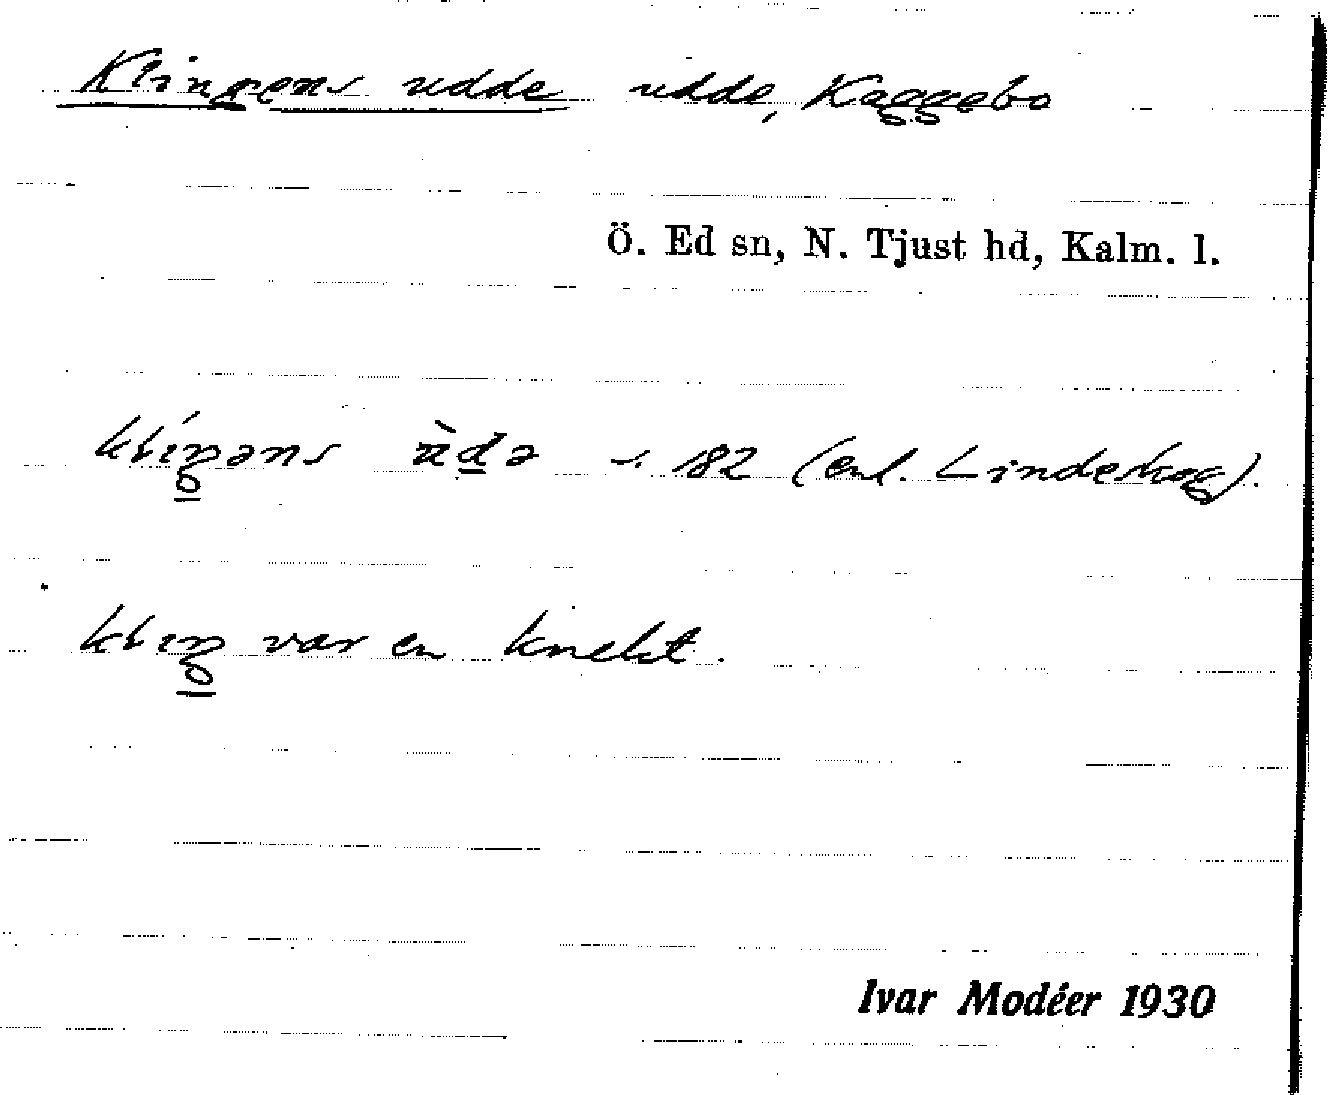 Klingens udde udde, Kaggebo
Ö. Ed sn, N. Tjust hd, Kalm. l.
klíŋəns ùdə 182 (enl. Lindeskog).
kliŋ var en knekt.
Ivar Modéer 1930